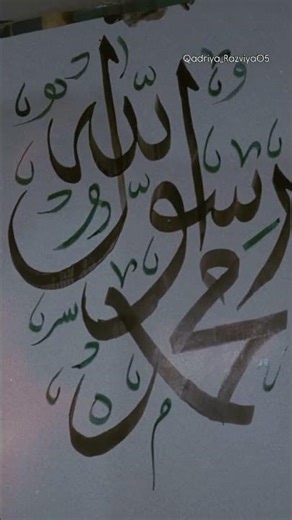 Qadriya_Razviya05
محمد
رسول
الله